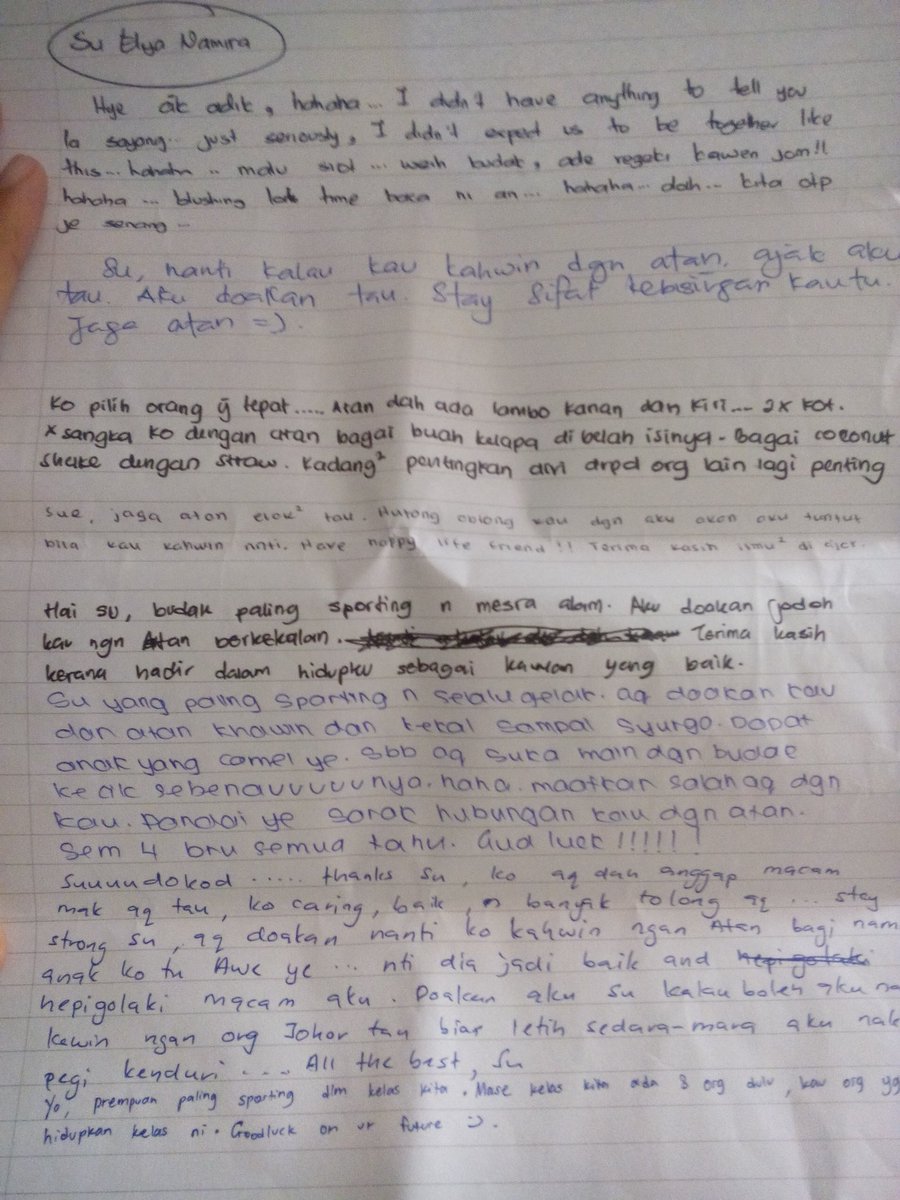 Su Elya Namira
Hye cik adik, hahaha... I didn't have anything to tell you
la sayang.. just seriously, I didn't expert us to be together like
this... hahaha .. malu siol ... weih budak, ade regeki kawen jom!!
hahaha ... blushing lak time baca ni an... hahaha... dah... kita otp
je senang..
Su, nanti kalau kau kahwin dgn atan, ajak aku
tau. Aku doakan tau. Stay sifat kebisingan kau tu.
Jaga atan =).
Ko pilih orang yg tepat..... Atan dah ada lambo kanan dan kiri... 2x kot.
x sangka ko dengan atan bagai buah kelapa di belah isinya - Bagai coconut
shake dengan straw. Kadang² pentingkan diri drpd org lain lagi penting
Sue, jaga atan elok² tau. Hutang oblong kau dgn aku akan aku tuntut
bila kau kahwin nnti. Have happy life friend!! Terima kasih ilmu² di ajar.
Hai su, budak paling sporting n mesra alam. Aku doakan jodoh
kau ngn Atan berkekalan. Terima kasih
kerana hadir dalam hidupku sebagai kawan yang baik.
Su yang paling sporting n selalu gelak. aq doakan kau
dan atan khawin dan kekal sampai syurga. Dapat
anak yang comel ye. Sbb aq suka main dgn budae
kecik sebenauuuuunya. haha. maafkan salah aq dgn
kau. Pandai ye sorok hubungan kau dgn atan.
Sem 4 bru semua tahu. Gud luck !!!!!!
Suuuudokod ..... thanks su, ko aq dah anggap macam
mak aq tau, ko caring, baik, n banyak tolong aq ... stay
strong su, aq doakan nanti ko kahwin ngan Atan bagi nam
anak ko tu Awe ye ... nti dia jadi baik and hepigolaki
hepigolaki macam aku. Doakan aku su kalau boleh aku na
kawin ngan org Johor tau biar letih sedara-mara aku nak
pegi kenduri .... All the best, Su
Yo, prempuan paling sporting dlm kelas kita. Mase kelas kita ada 8 org dulu, kau org yg
hidupkan kelas ni. Goodluck on ur future :).